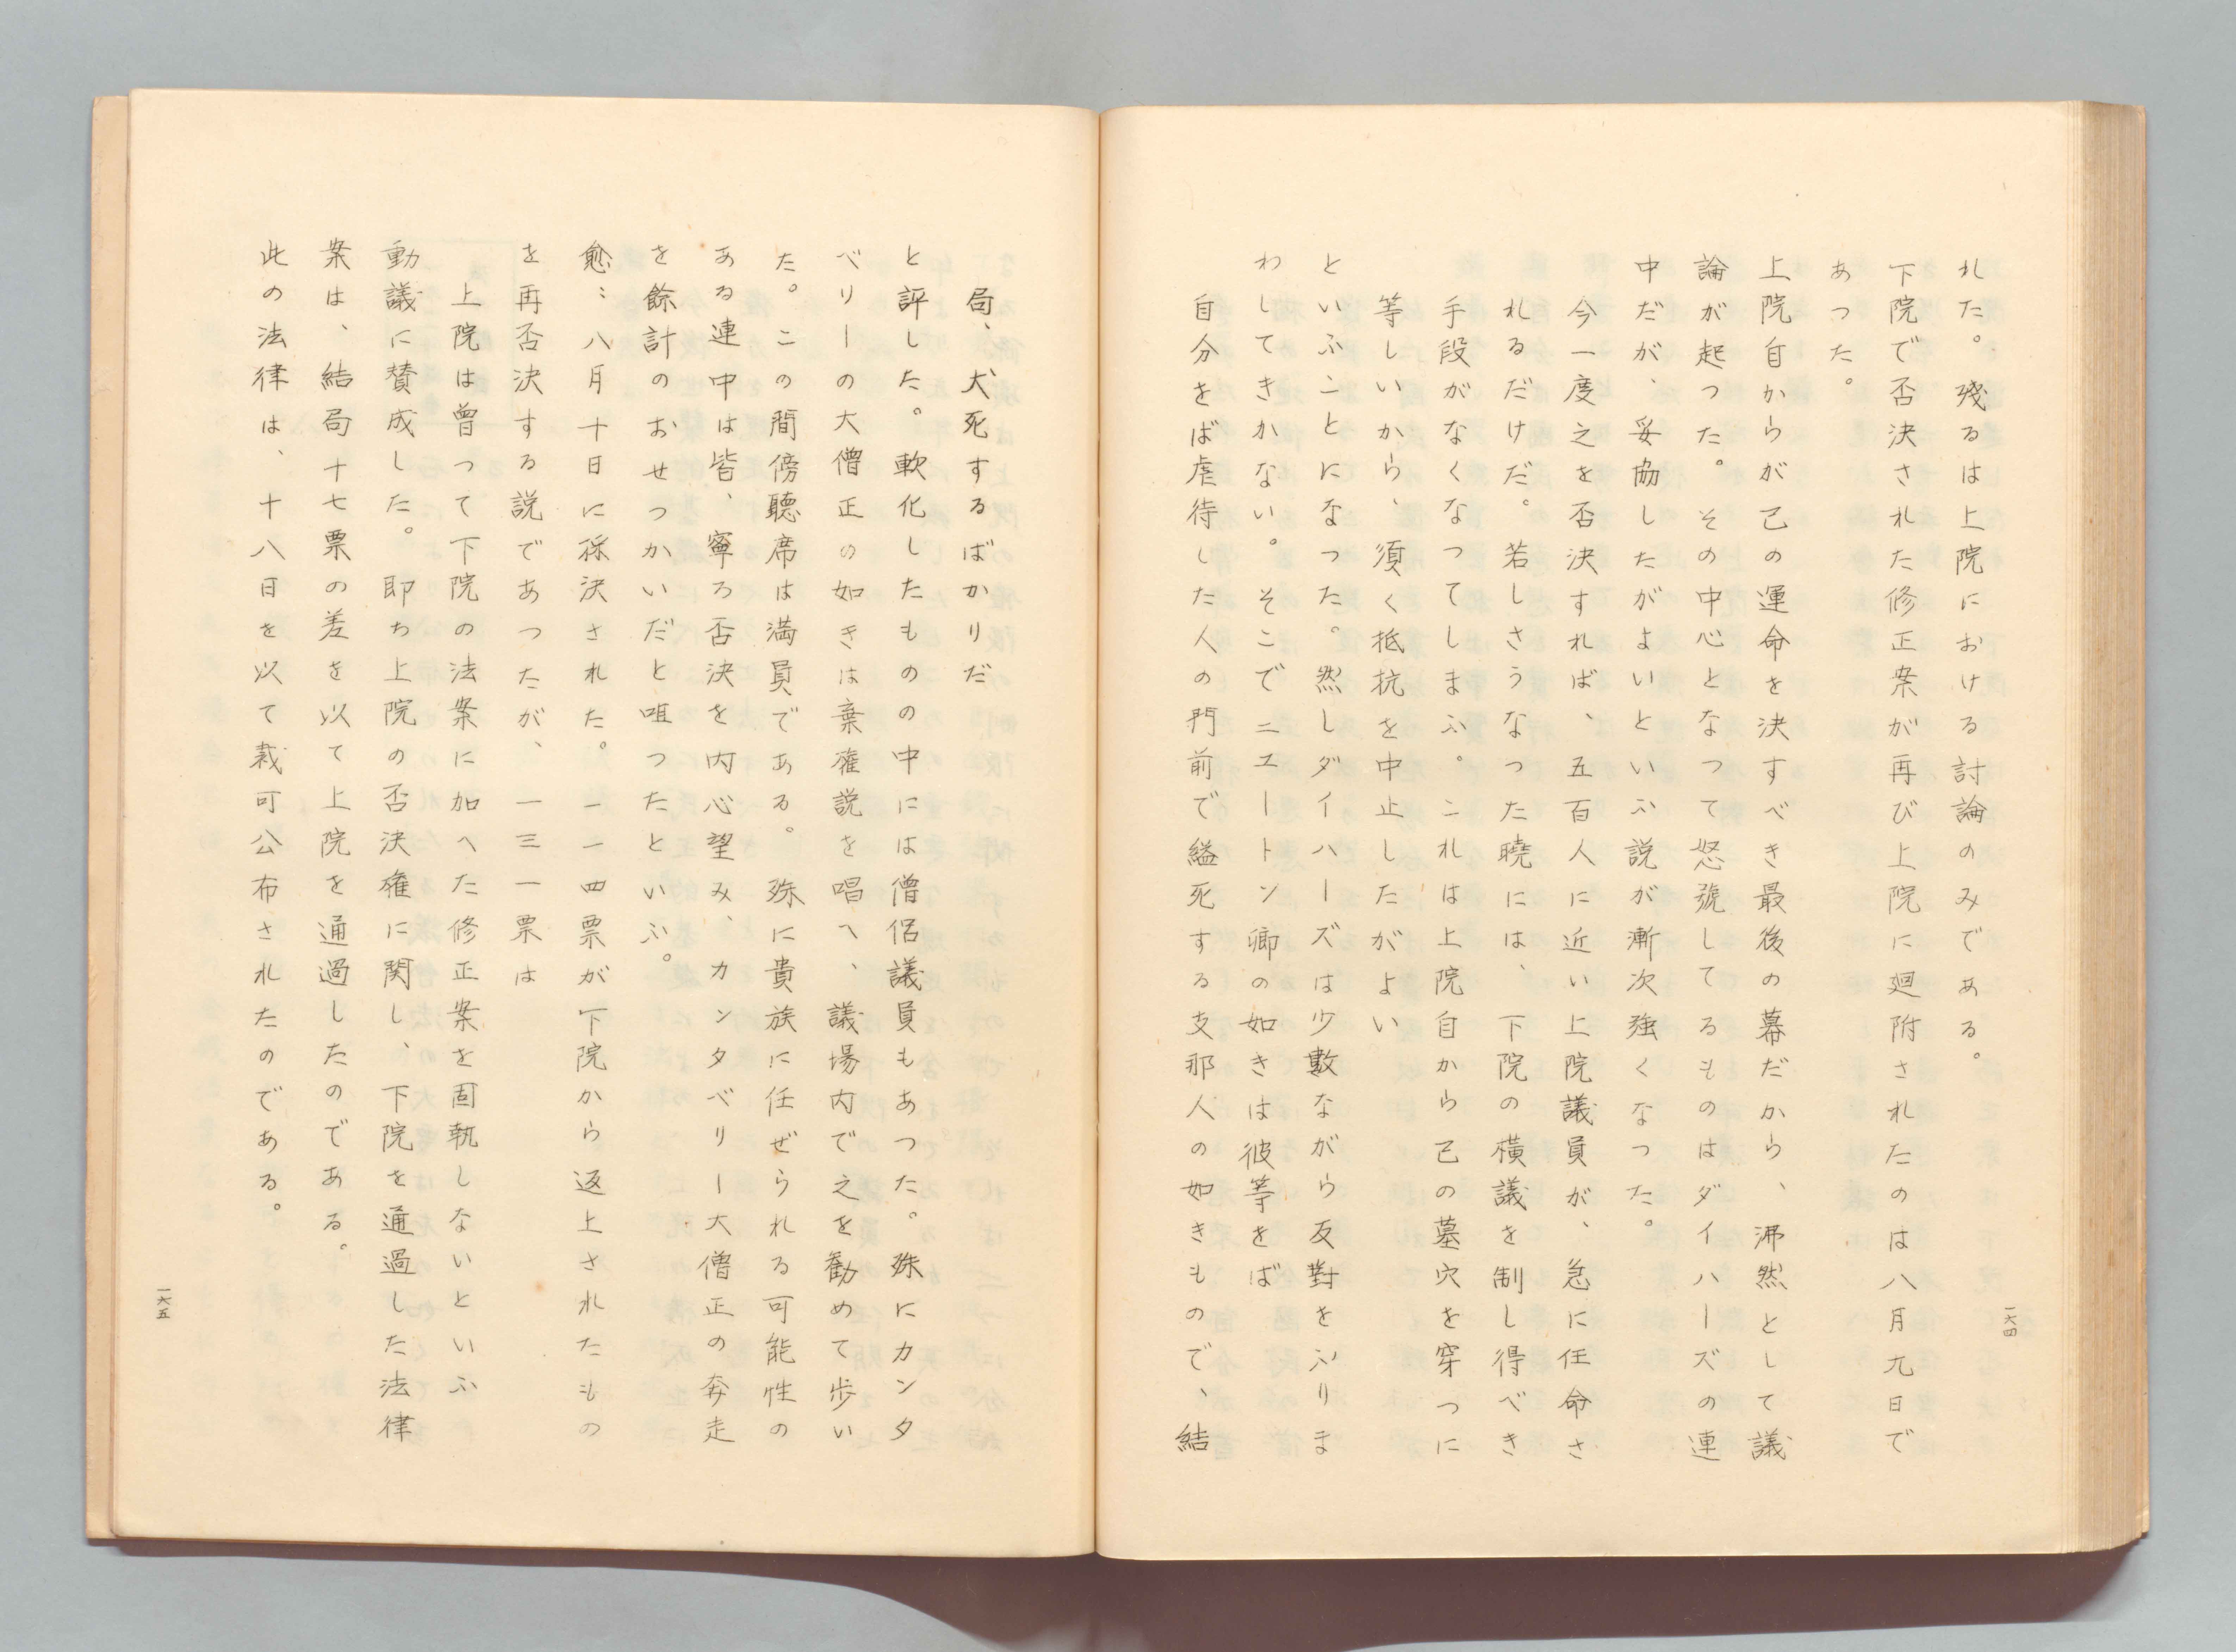 れた。残るは上院における討論のみである。
下院で否決された修正案が再び上院に廻附されたのは八月九日で
あつた。
上院自からが己の運命を決すべき最後の幕だから、沸然として議
論が起つた。その中心となつて怒號してるものはダイハーズの連
中だが、妥協したがよいといふ説が漸次強くなつた。
今一度之を否決すれば、五百人に近い上院議員が、急に任命さ
れるだけだ。若しさうなつた曉には、下院の横議を制し得べき
手段がなくなつてしまふ。これは上院自から己の墓穴を穿つに
等しいから、須く抵抗を中止したがよい
といふことになつた。然しダイハーズは少數ながら反對をふりま
わしてきかない。そこでニエートン卿の如きは彼等をば
自分をば虐待した人の門前で縊死する支那人の如きもので、結
一六四
局、犬死するばかりだ
と評した。軟化したものの中には僧侶議員もあつた。殊にカンタ
ベリーの大僧正の如きは棄権説を唱へ、議場内で之を勧めて歩い
た。この間傍聽席は満員である。殊に貴族に任ぜられる可能性の
ある連中は皆、寧ろ否決を内心望み、カンタベリー大僧正の奔走
を餘計のおせつかいだと咀つたといふ。
愈〻八月十日に採決された。一一四票が下院から返上されたもの
を再否決する説であつたが、一三一票は
上院は曾つて下院の法案に加へた修正案を固執しないといふ
動議に賛成した。即ち上院の否決権に関し、下院を通過した法律
案は、結局十七票の差を以て上院を通過したのである。
此の法律は、十八日を以て裁可公布されたのである。
一六五